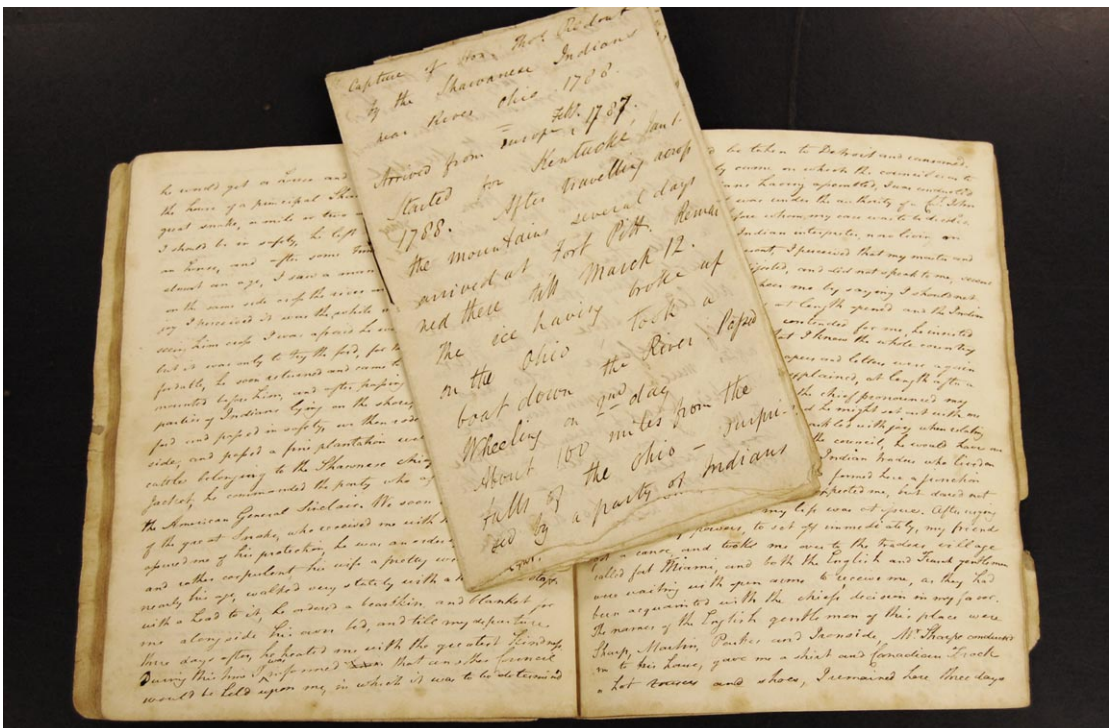 Capture of Hon. Thos. Ridout
by the Shawanese Indians
near River Ohio 1788.
Arrived from Europe, Feb. 1787,
Started for Kentucke, Jan'y.
1788. After travelling across
the mountains several days
arrived at Fort Pitt. Remai
ned there till March 12.
The ice having broke up
on the Ohio, took a
boat down the River Passed
Wheeling on 2nd day
About 100 miles from the
falls of the Ohio - surpri-
sed by a party of Indians
he would get a horse and
the house of a principal
great snake, a mile or two
I should be in safety, he left
an horse, and after some
almost an age, I saw a man
on the same side of the river
joy I perceived it was the white
seeing him cross I was afraid he
but it was only to try the ford,
fordable, he soon returned and came to
mounted before him, and after passing
parties of Indians lying on the shore,
ford and passed in safety, we then
side, and passed a fine plantation
cattle belonging to the Shawnese Chief
he commanded the party who
the American General Sinclair. We soon
of the great Snake, who received me with
assured me of his protection, he was an
and rather corpulent, his wife a pretty
nearly his age, walked very stately with a
with a head to it, he ordered a bearskin, and blanket for
me alongside his own bed, and till my departure
three days after, he treated me with the greatest kindness,
During this time I was informed that another Council
would be held upon me, in which it was to be determined
be taken to Detroit and ransomed.
came, on which the council was to
having assembled, I was conducted
was under the authority of Capt. John
whom my case was to be
Indian interpreter, now living on
I perceived that my master and
dejected, and did not speak to me,
me by saying I should not
at length opened and the Indian
contended for me, he insisted
that I knew the whole country
papers and letters were again
explained, at length after a
the chief pronounced my
he might set out with me
with joy when relating
the council, he would have me
Indian traders who lived on
formed here a junction
expected me, but dared not
my life was at issue. After urging
powers, to set off immediately, my friend
got a canoe, and took me over to the traders village
called fort Miami, and both the English and French gentlemen
were waiting with open arms to receive me, as they had
been acquainted with the chiefs decision in my favor.
The names of the English gentlemen of this place were
Sharp, Martin, Parkes and Ironside, Mr. Sharpe conducted
me to his house, gave me a shirt and Canadian Frock
a hat and shoes, I remained here three days